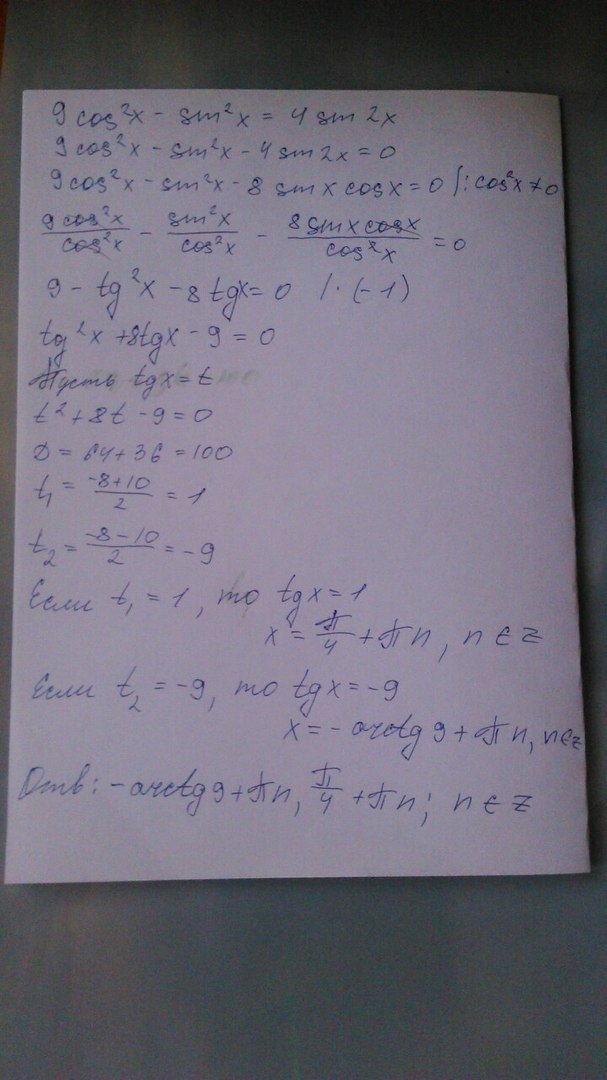 9cos²x - sin²x = 4 sin 2x
9cos²x - sin²x - 4 sin 2x = 0
9cos²x - sin²x - 8 sinx cosx = 0 |: cos²x ≠ 0
9cos²x/cos²x - sin²x/cos²x - 8sinx cosx/cos²x = 0
9 - tg²x - 8 tgx = 0 | · (-1)
tg²x + 8tgx - 9 = 0
Пусть tgx = t
t² + 8t - 9 = 0
D = 64 + 36 = 100
t₁ = -8+10/2 = 1
t₂ = -8-10/2 = -9
Если t₁ = 1, то tgx = 1
x = π/4 + πn, n ∈ Z
Если t₂ = -9, то tgx = -9
x = - arctg 9 + πn, n ∈ Z
Отв: - arctg 9 + πn, π/4 + πn; n ∈ Z